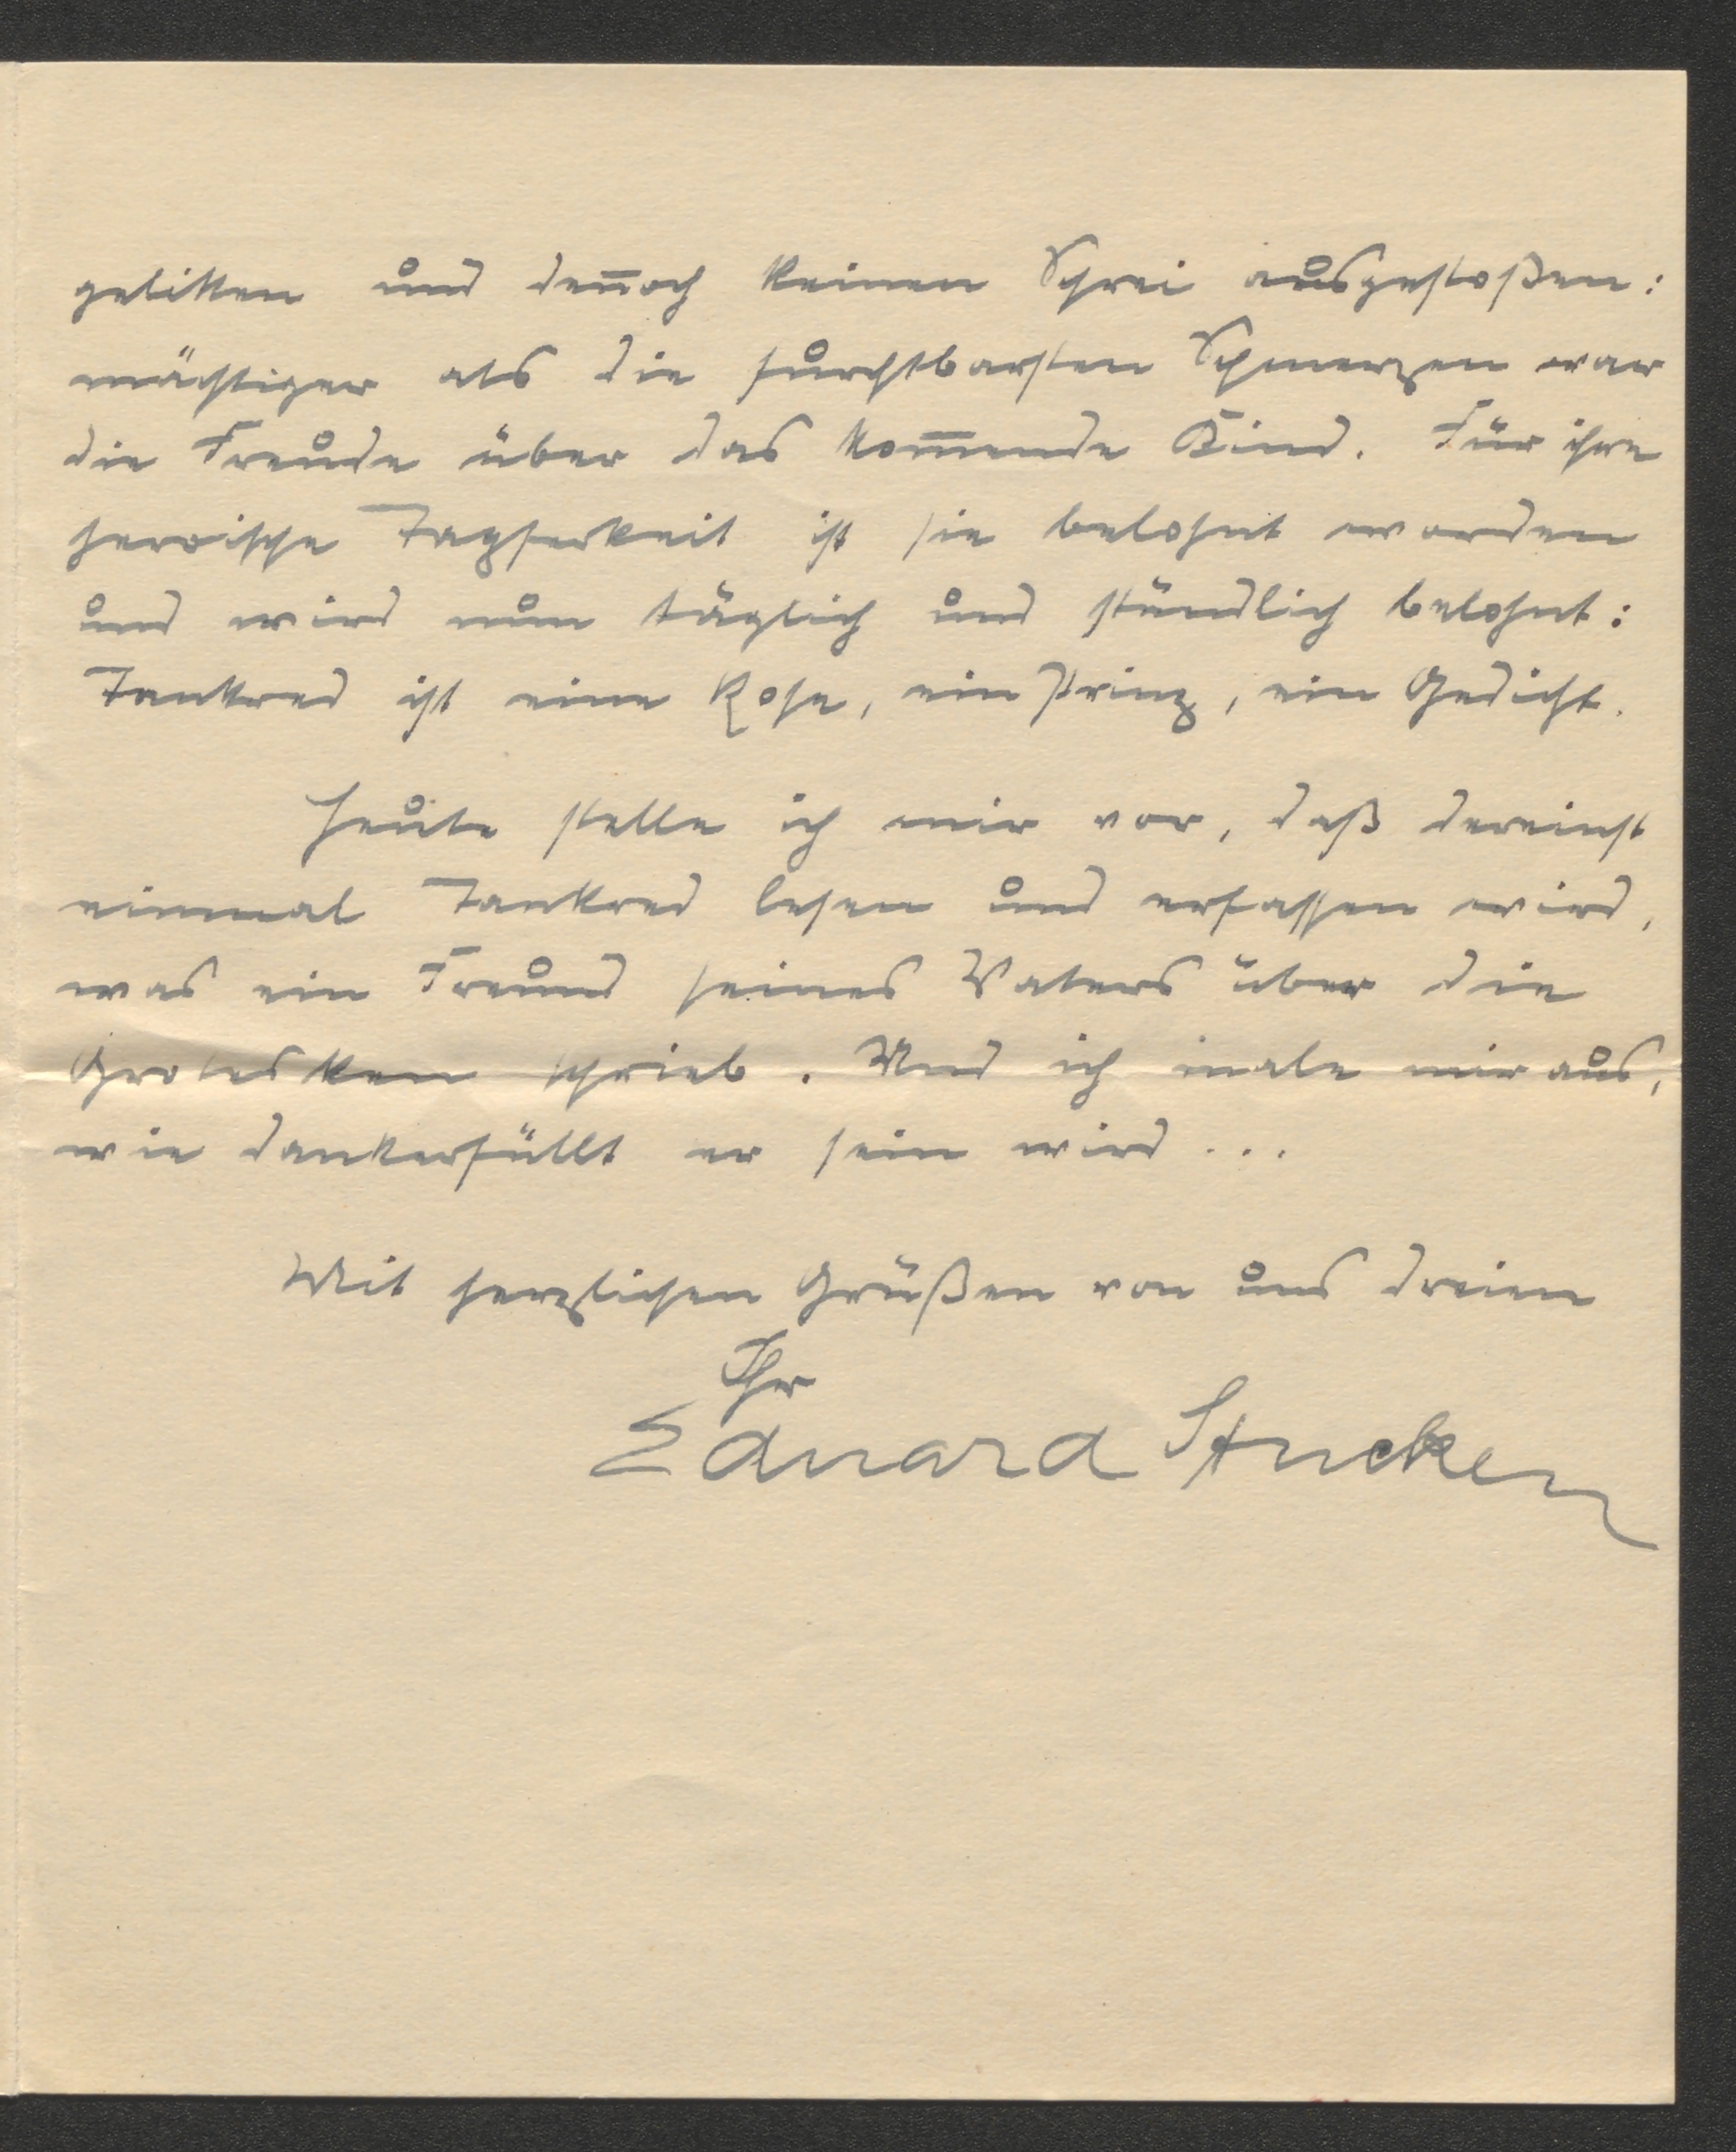 gelitten und den̅och keinen Schrei ausgestoßen:
mächtiger als die furchtbarsten Schmerzen war
die Freude über das kom̅ende Kind. Für ihre
heroische Tapferkeit ist sie belohnt worden
und wird nun täglich und stündlich belohnt:
Tankred ist eine Rose, ein Prinz, ein Gedicht.
Heute stelle ich mir vor, daß dereinst
einmal Tankred lesen und erfassen wird,
was ein Freund seines Vaters über die
Grotesken schrieb. Und ich male mir aus,
wie dankerfüllt er sein wird ...
Mit herzlichen Grüßen von uns dreien
Ihr
Eduard Stucken